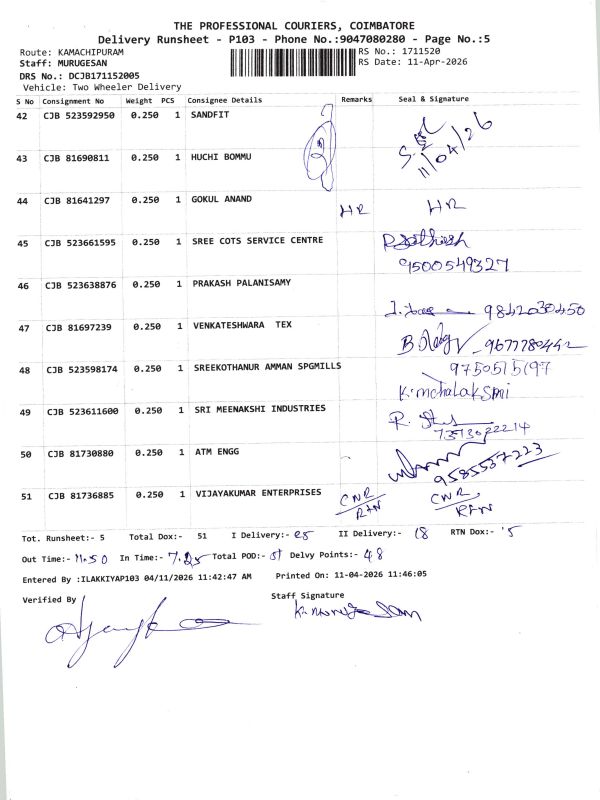 THE PROFESSIONAL COURIERS, COIMBATORE
Delivery Runsheet - P103 - Phone No.:9047080280 - Page No.:5
Route: KAMACHIPURAM RS No.: 1711520
Staff: MURUGESAN RS Date: 11-Apr-2026
DRS No.: DCJB171152005
Vehicle: Two Wheeler Delivery
S No Consignment No Weight PCS Consignee Details Remarks Seal & Signature
42 CJB 523592950 0.250 1 SANDFIT
11/04/26
43 CJB 81690811 0.250 1 HUCHI BOMMU
44 CJB 81641297 0.250 1 GOKUL ANAND HR HR
45 CJB 523661595 0.250 1 SREE COTS SERVICE CENTRE
9500549327
46 CJB 523638876 0.250 1 PRAKASH PALANISAMY
9842030450
47 CJB 81697239 0.250 1 VENKATESHWARA TEX
48 CJB 523598174 0.250 1 SREEKOTHANUR AMMAN SPGMILLS
49 CJB 523611600 0.250 1 SRI MEENAKSHI INDUSTRIES
50 CJB 81730880 0.250 1 ATM ENGG
9585537223
51 CJB 81736885 0.250 1 VIJAYAKUMAR ENTERPRISES
Tot. Runsheet:- 5 Total Dox:- 51 I Delivery:- II Delivery:- 18 RTN Dox:- 5
Out Time:- 11.50 In Time:- 7.25 Total POD:- 51 Delvy Points:- 48
Entered By :ILAKKIYAP103 04/11/2026 11:42:47 AM Printed On: 11-04-2026 11:46:05
Verified By Staff Signature